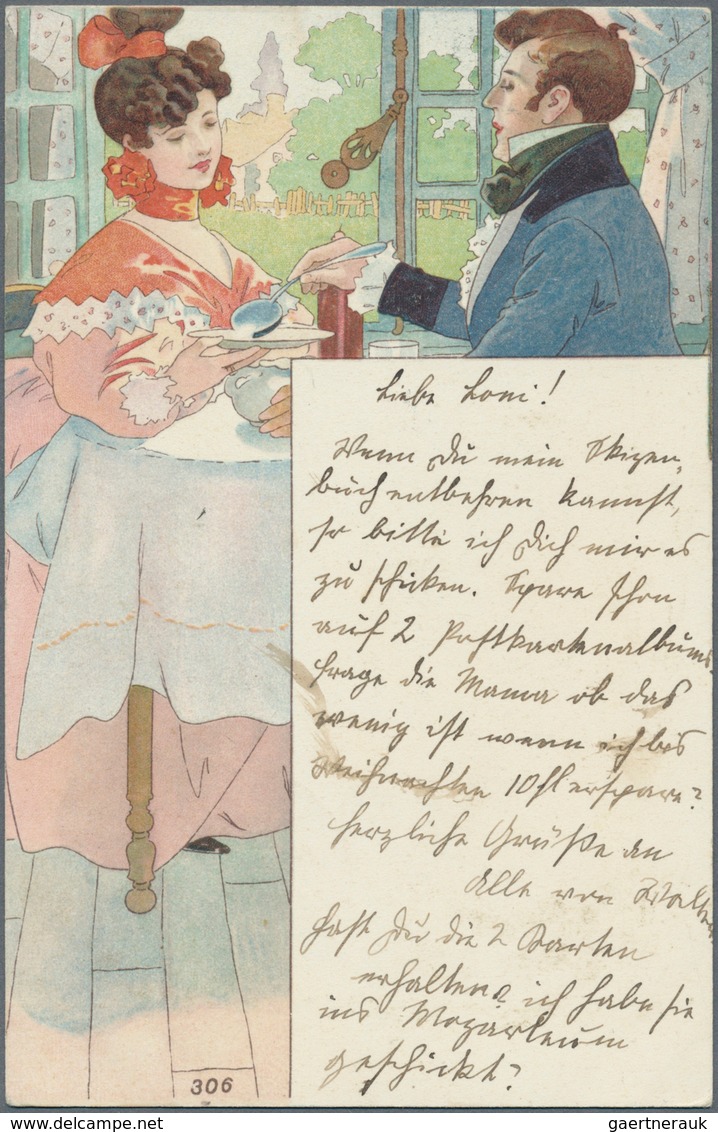 Liebe Loni!
Wenn Du mein Skizen-
buch entbehren kannst,
so bitte ich Dich mir es
zu schicken. Spare schon
auf 2 Postkartenalbums.
frage die Mama ob das
wenig ist wenn ich bis
Weihnachten 10 fl erspare?
Herzliche Grüße an
Alle von Walter
Hast Du die 2 Karten
erhalten? ich habe sie
ins Mozarteum
geschickt?
306
gaertnerauk